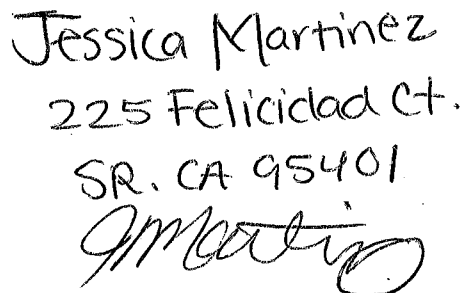 Jessica Martinez
225 Felicidad Ct.
SR. CA 95401
JMartinez